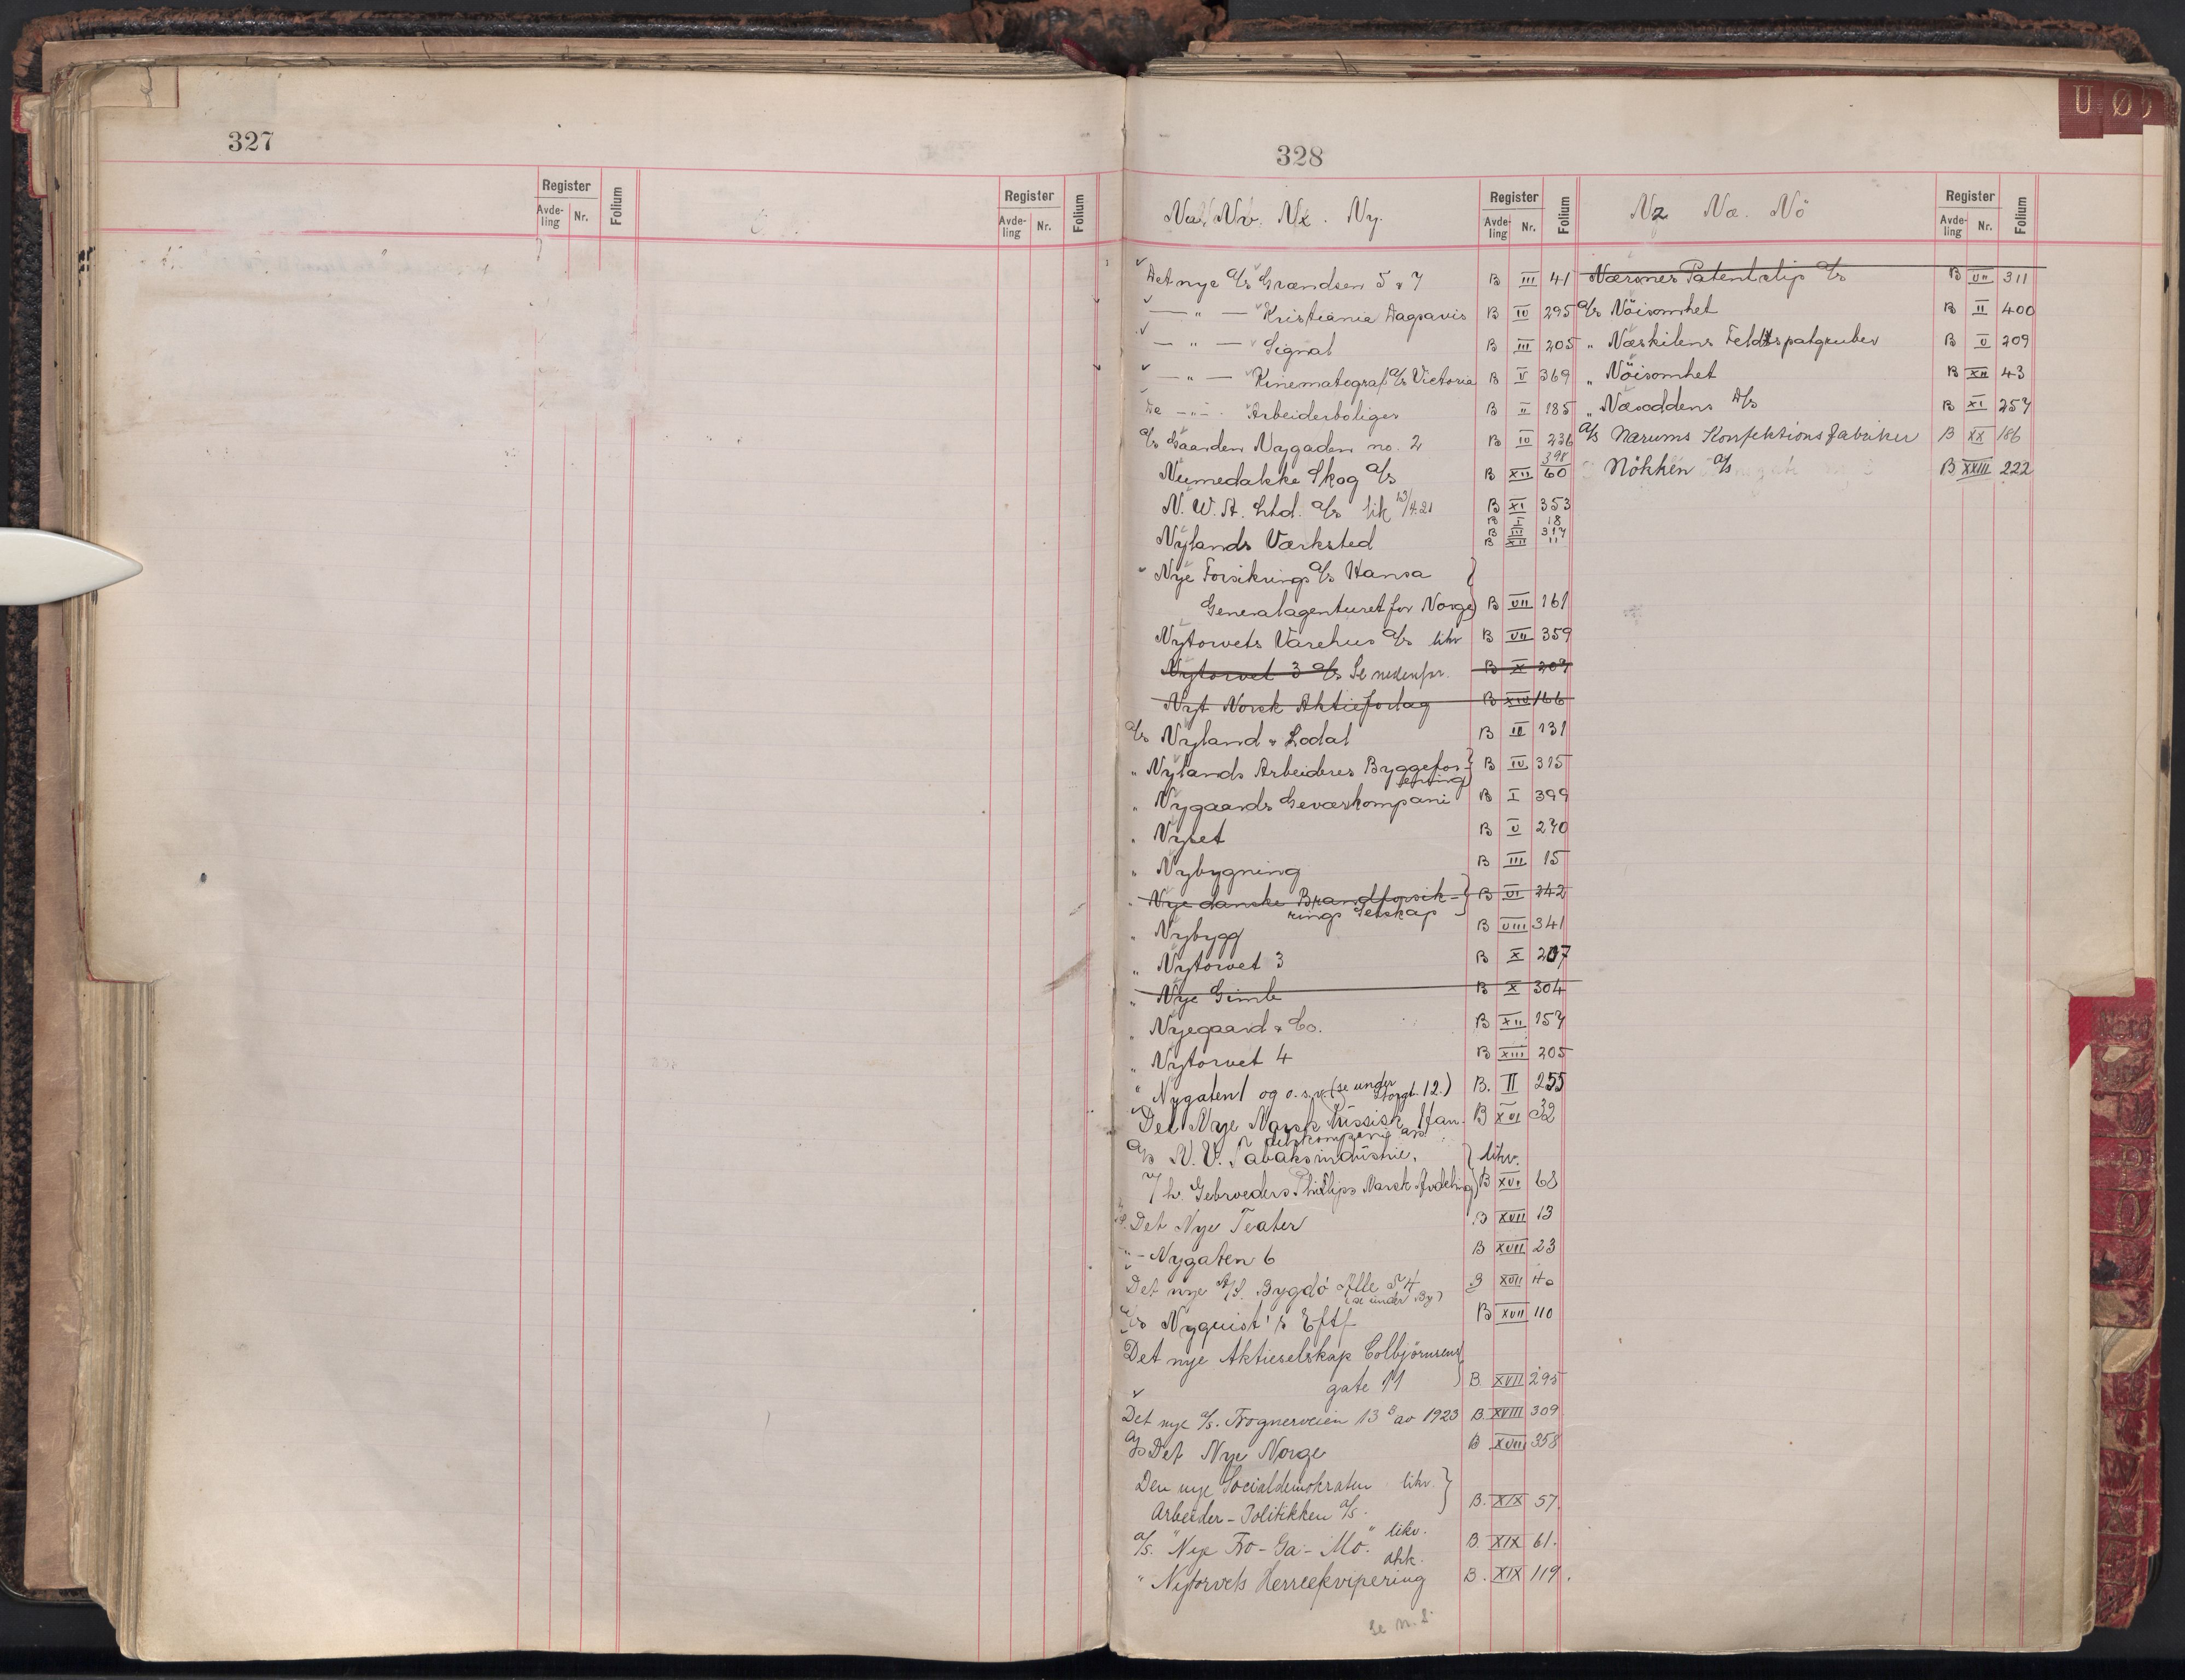 327
Register
Avde-ling Nr. Folium
Register
Avde-ling Nr. Folium
U Ø
328
Nv. Nx. Ny.
Register
Avde-ling Nr. Folium
Nz Næ. Nö
Register
Avde-ling Nr. Folium
Det nye A/s Grændsen 5 & 7 B III 41
— " — Kristiania Dagsavis B IV 295
— " — Signal B III 205
— " — Kinematograf A/s Victoria B V 369
De — " — Arbeiderboliger B II 185
A/s Gaarden Nygaden no. 2 B IV 236
398
Numedalske Skog A/s B XII 60
N. W. A. Ltd. A/s lik 13/4.21 B XI 353
B I 18
Nylands Værksted B III 317
B XII 11
Nye Forsikrings A/s Hansa
Generalagenturet for Norge B VII 161
Nytorvets Varehus A/s likv B VII 359
Nytorvet 3 A/s Se nedenfor. B X 207
Nyt Norsk Aktieforlag B XIV 166
A/s Nyland & Lodal B III 131
" Nylands Arbeideres Byggefor-
ening B IV 315
" Nygaards Geværkompani B I 399
" Nyset B V 270
" Nybygning B III 15
" Nye danske Brandforsik-
rings Selskap B VI 242
" Nybygg B VIII 341
" Nytorvet 3 B X 207
" Nye Gimle B X 304
" Nyegaard & Co. B XII 157
" Nytorvet 4 B XIII 205
" Nygaten 1 og o.s.v. (se under Storgt. 12.) B. II 255
Det Nye Norsk Russisk Han-
delskompani A/S B XVI 32
A/s N. V. Tabaksindustrie, likv.
v/h. Gebroeders Philips Norsk Avdeling B XVI 68
Det Nye Teater B XVII 13
" - Nygaten 6 B XVII 23
Det nye A/S. Bygdö Alle 54 B XVII 40
(se under By)
A/s Nyquist's Eftf B XVII 110
Det nye Aktieselskap Colbjörnsens
gate 11 B XVII 295
Det nye A/s. Frognerveien 13 B av 1923 B. XVIII 309
A/s Det Nye Norge B XVIII 358
Den nye Socialdemokraten likv.
Arbeider-Politikken A/s. B. XIX 57.
A/s. "Nye Fro-Ga-Mo." likv. B. XIX 61.
" Nytorvets Herreekvipering B. XIX 119.
Se n. S.
Nærsnes Patentslip A/s B VII 311
A/s Nöisomhet B II 400
" Næskilens Feldtspatgruber B V 209
" Nöisomhet B XII 43
" Næsoddens A/s B XI 257
A/s Nærums Konfektionsfabriker B XX 186
Nökken A/s B XXIII 222